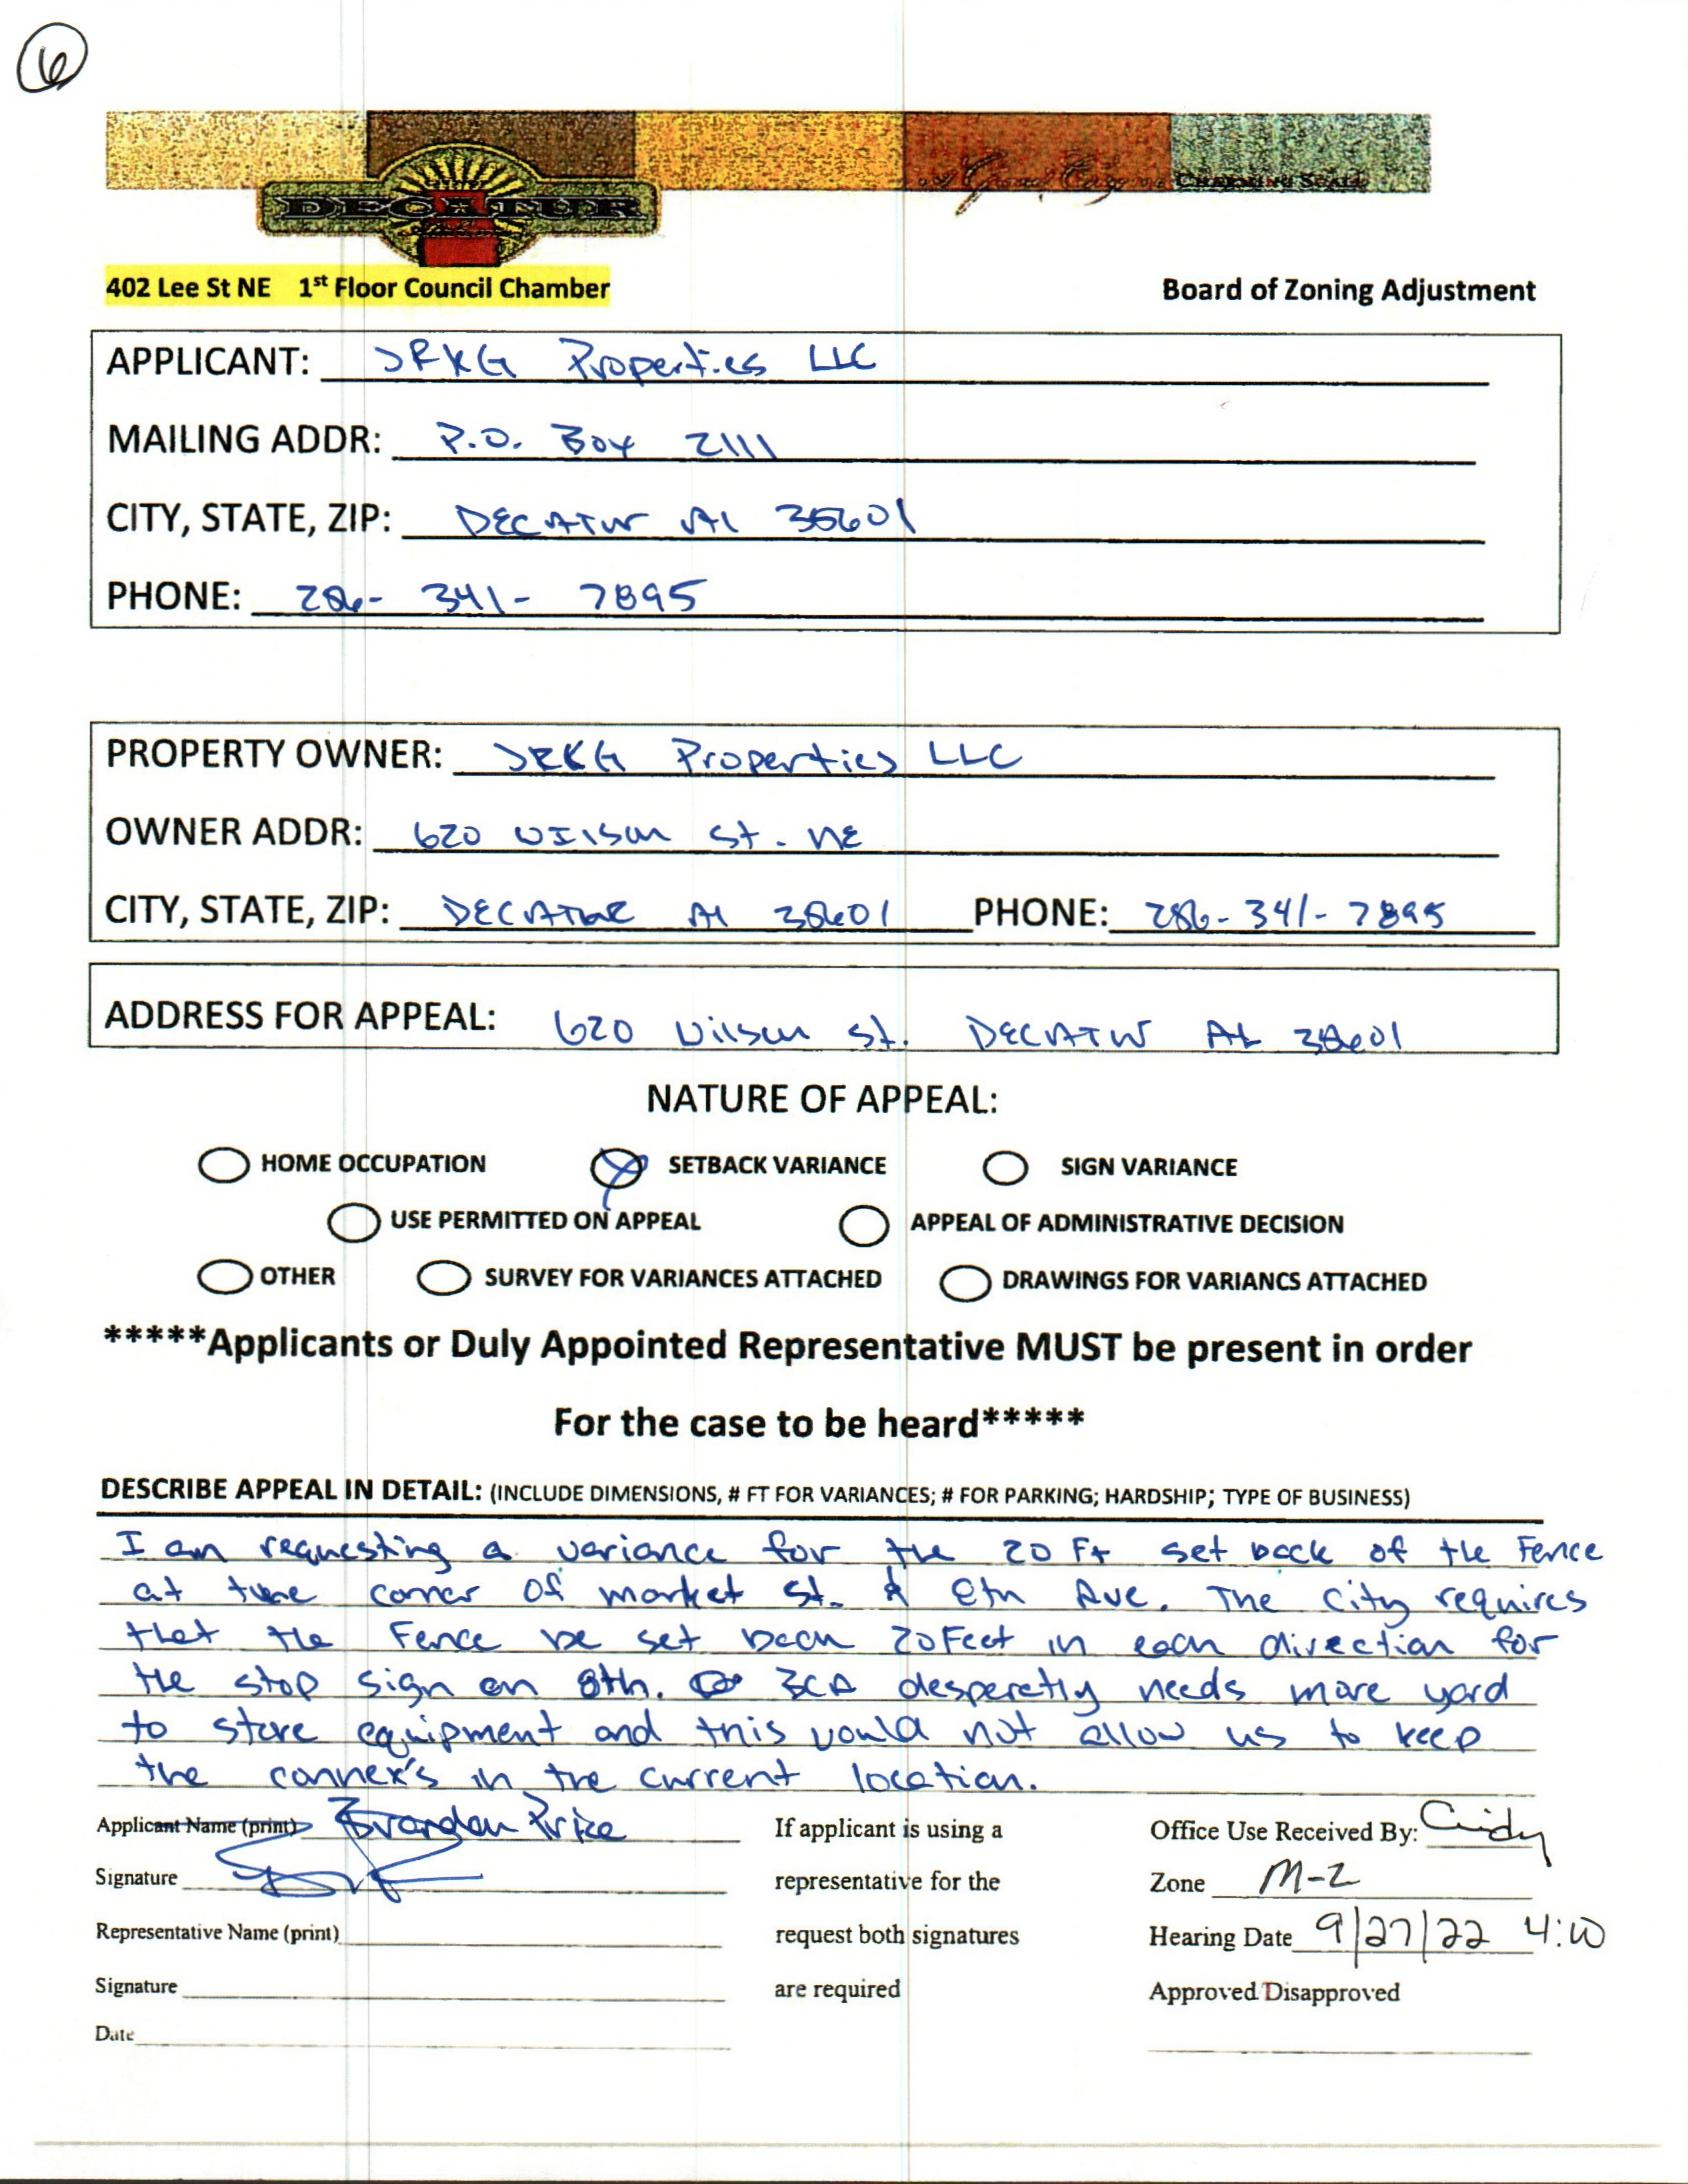 6
DECATUR
A Grand City on a CHARMING SCALE
402 Lee St NE 1st Floor Council Chamber
Board of Zoning Adjustment
APPLICANT: JRKG Properties LLC
MAILING ADDR: P.O. Box 2111
CITY, STATE, ZIP: DECATUR Al 35601
PHONE: 256- 341- 7895
PROPERTY OWNER: JRKG Properties LLC
OWNER ADDR: 620 Wilson St. NE
CITY, STATE, ZIP: DECATUR Al 35601 PHONE: 256-341-7895
ADDRESS FOR APPEAL: 620 Wilson St. DECATUR AL 35601
NATURE OF APPEAL:
HOME OCCUPATION SETBACK VARIANCE SIGN VARIANCE
USE PERMITTED ON APPEAL APPEAL OF ADMINISTRATIVE DECISION
OTHER SURVEY FOR VARIANCES ATTACHED DRAWINGS FOR VARIANCS ATTACHED
*****Applicants or Duly Appointed Representative MUST be present in order
For the case to be heard*****
DESCRIBE APPEAL IN DETAIL: (INCLUDE DIMENSIONS, # FT FOR VARIANCES; # FOR PARKING; HARDSHIP; TYPE OF BUSINESS)
I am requesting a variance for the 20 Ft set back of the Fence
at the corner of market St. & 8th Ave. The City requires
that the Fence be set back 20 Feet in each direction for
the stop sign on 8th. BCA desperetly needs more yard
to store equipment and this would not allow us to keep
the connex's in the current location.
Applicant Name (print) Brandon Price
Signature
Representative Name (print)
Signature
Date
If applicant is using a
representative for the
request both signatures
are required
Office Use Received By: Cindy
Zone M-2
Hearing Date 9/27/22 4:00
Approved Disapproved